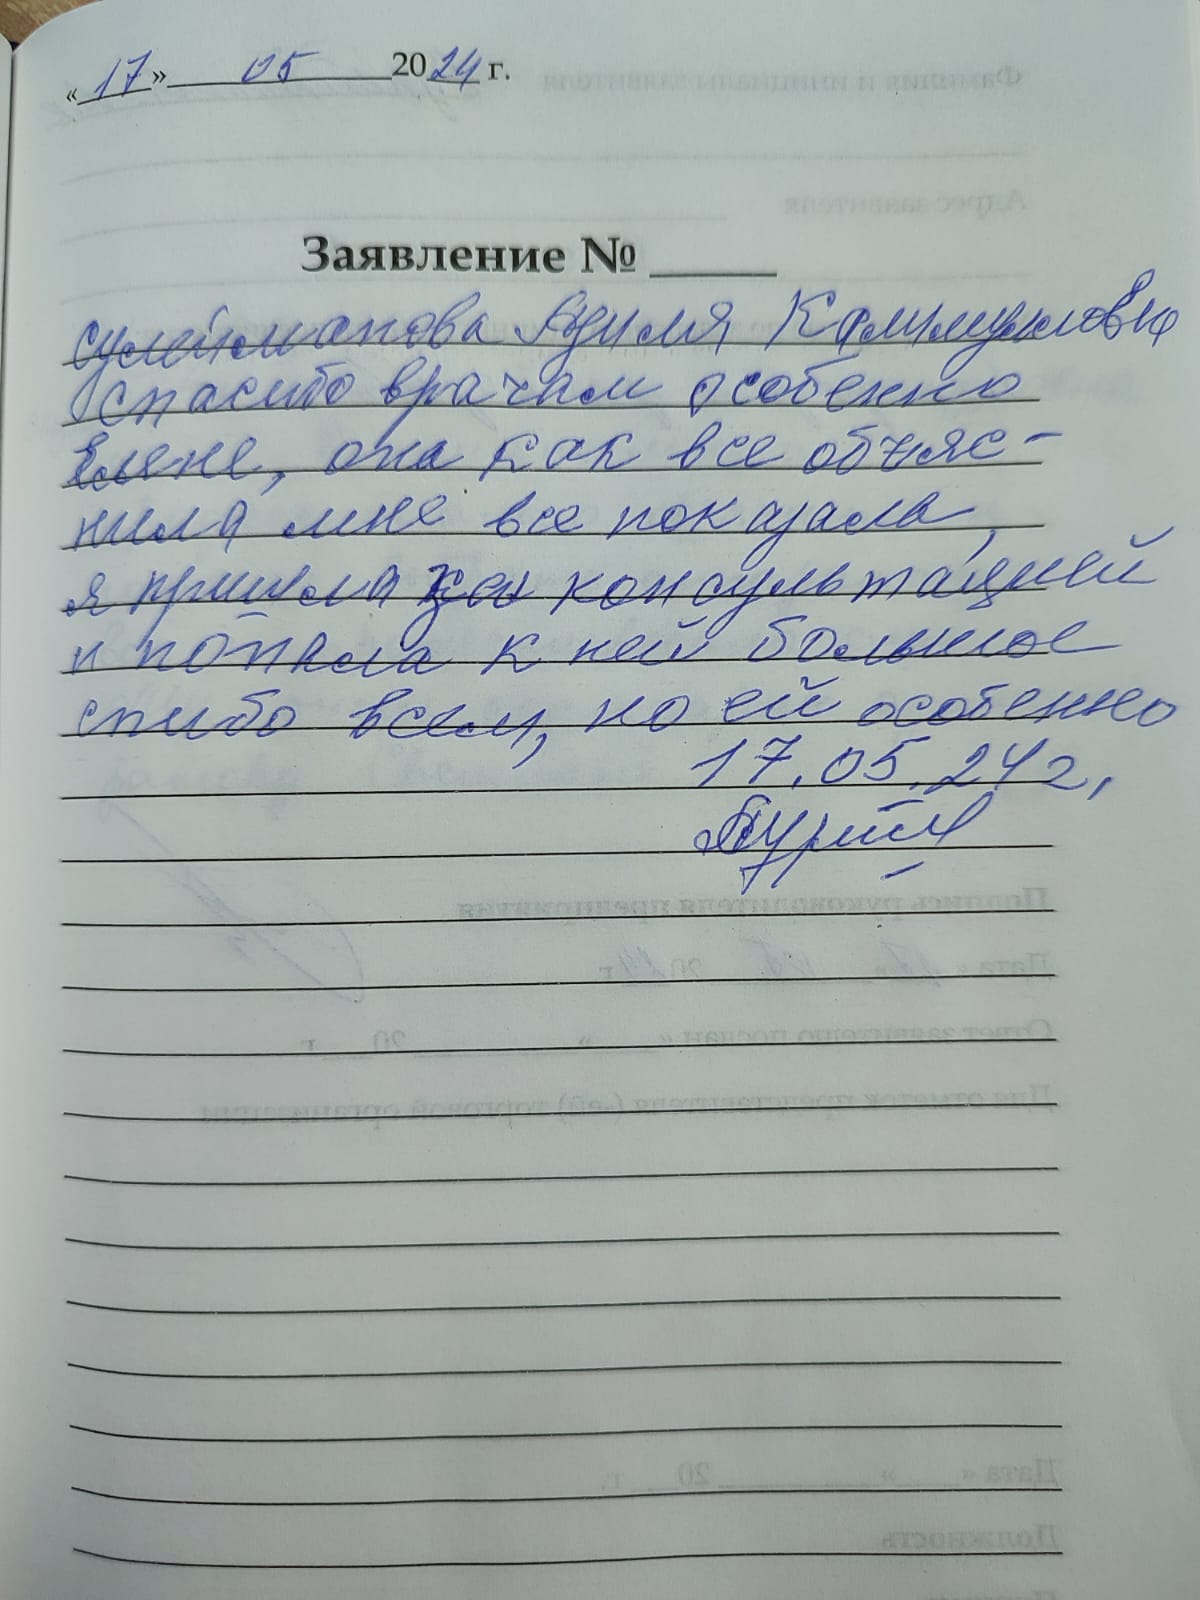 «17» 05 2024 г.
Заявление № ____
Сулейманова Адиля
спасибо врачам особенно
Елене, она как все объяс-
нила мне все показала,
я пришла за консультацией
и попала к ней большое
спибо всем, но ей особенно
17.05.24г.